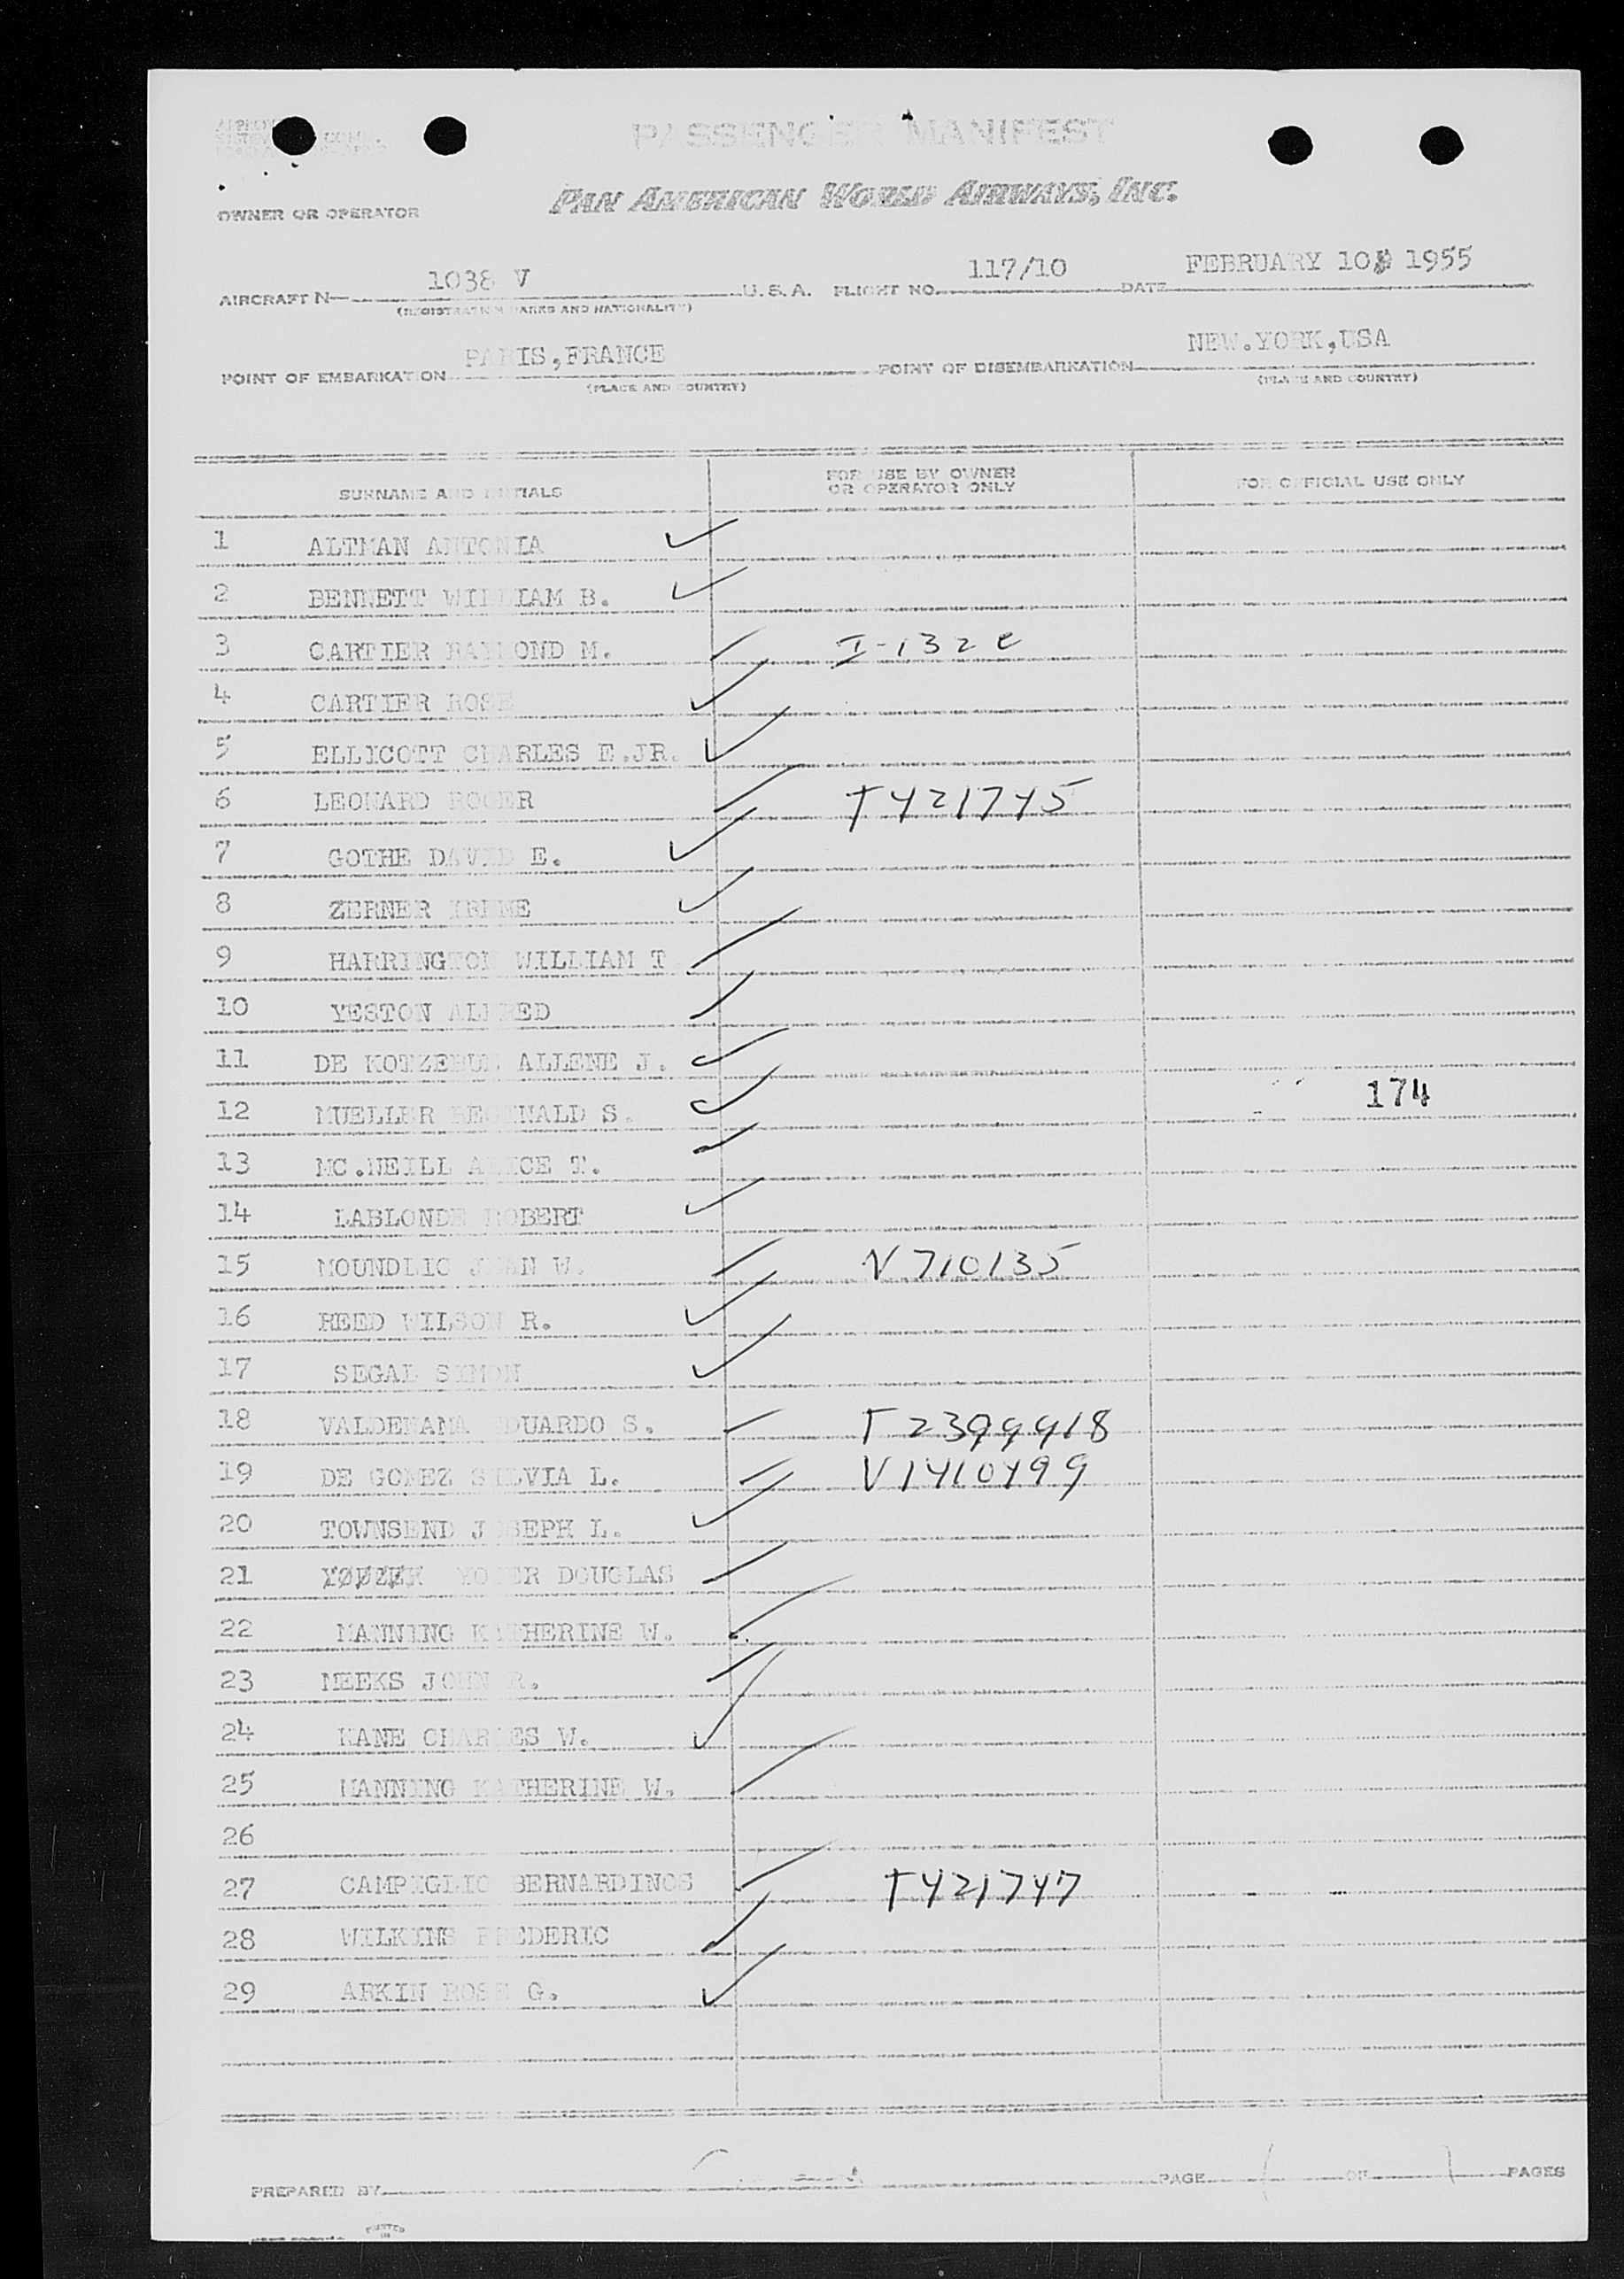 PASSENGER MANIFEST
PAN AMERICAN WORLD AIRWAYS, INC.
OWNER OR OPERATOR
AIRCRAFT N— 1038 V U.S.A. FLIGHT NO. 117/10 DATE FEBRUARY 10 1955
(REGISTRATION MARKS AND NATIONALITY)
POINT OF EMBARKATION PARIS,FRANCE POINT OF DISEMBARKATION NEW.YORK,USA
(PLACE AND COUNTRY) (PLACE AND COUNTRY)
SURNAME AND INITIALS FOR USE BY OWNER OR OPERATOR ONLY FOR OFFICIAL USE ONLY
1 ALTMAN ANTONIA
2 BENNETT WILLIAM B.
3 CARTIER RAYMOND M. I-132 c
4 CARTIER ROSE
5 ELLICOTT CHARLES E.JR.
6 LEONARD ROGER T421745
7 GOTHE DAVID E.
8 ZERNER IRENE
9 HARRINGTON WILLIAM T
10 YESTON ALFRED
11 DE KOTZEBUE ALLENE J.
12 MUELLER REGINALD S. 174
13 MC.NEILL ALICE T.
14 LABLONDE ROBERT
15 MOUNDLIC JEAN W. V710135
16 REED WILSON R.
17 SEGAL SIMON
18 EDUARDO S. T2399918
19 DE GOMEZ SYLVIA L. V1410499
20 TOWNSEND JOSEPH L.
21 YODER DOUGLAS
22 MANNING KATHERINE W.
23 MEEKS JOHN R.
24 KANE CHARLES W.
25 MANNING KATHERINE W.
26
27 CAMPIGLIO BERNARDINOS T421747
28 WILKINS FREDERIC
29 ARKIN ROSE G.
PREPARED BY PAGE 1 OF 1 PAGES
PRINTED IN